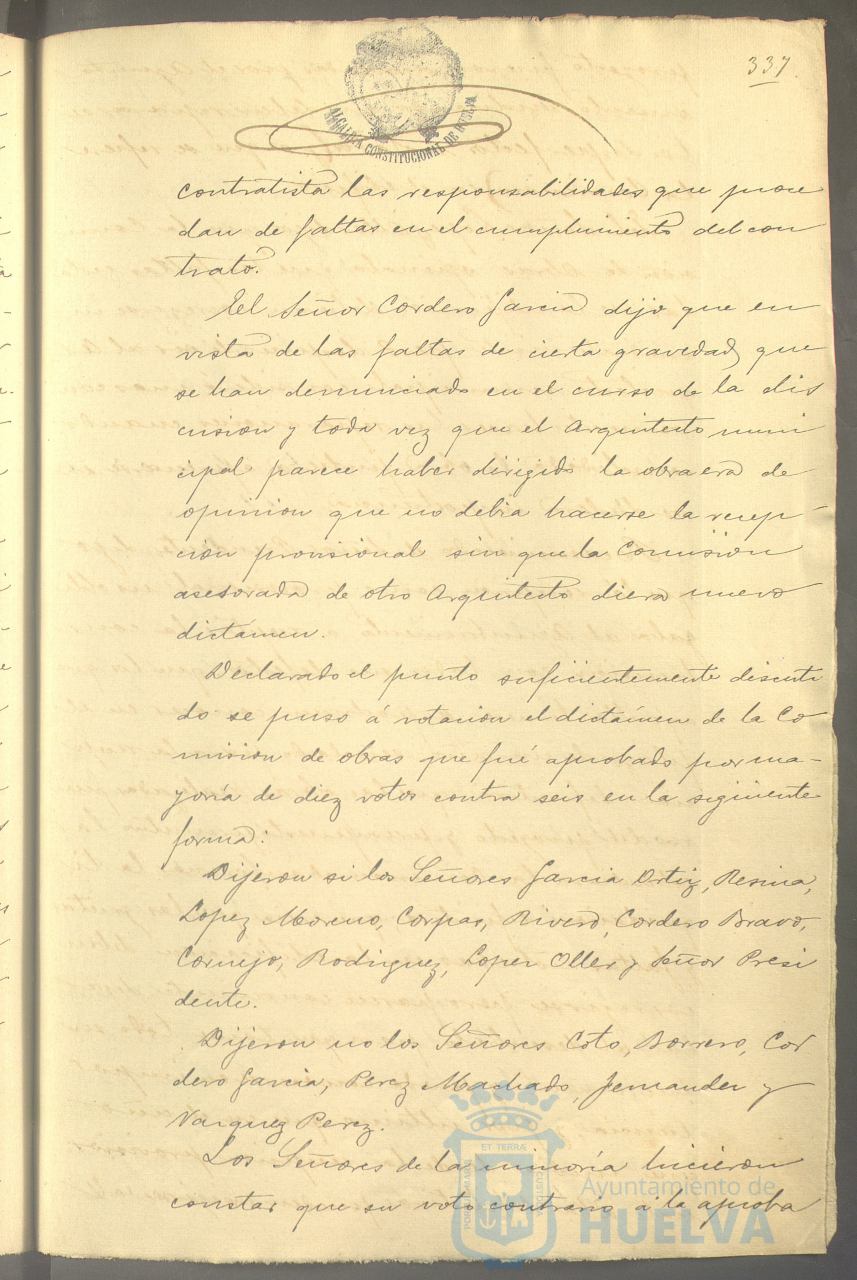 337
ALCALDIA CONSTITUCIONAL DE HUELVA
contratista las responsabilidades que proce
dan de faltas en el cumplimiento del con
trato.
El Señor Cordero Garcia dijo que en
vista de las faltas de cierta gravedad que
se han denunciado en el curso de la dis
cusion y toda vez que el Arquitecto muni
cipal parece haber dirigido la obra era de
opinion que no debia hacerse la recep-
cion provisional sin que la Comision
asesorada de otro Arquitecto diera nuevo
dictámen.
Declarado el punto suficientemente discuti
do se puso á votacion el dictámen de la Co
mision de obras que fué aprobado por ma-
yoría de diez votos contra seis en la siguiente
forma:
Dijeron si los Señores Garcia Ortiz, Resina,
Lopez Moreno, Corpas, Rivero, Cordero Bravo,
Cornejo, Rodriguez, Lopez Oller y Señor Presi
dente.
Dijeron no los Señores Coto, Borrero, Cor
dero Garcia, Perez Machado, Jernander y
Vazquez Perez.
Los Señores de la minoría hicieron
constar que su voto contrario á la aproba
ET TERRÆ
PORTUS MARIS
CUSTODIA
Ayuntamiento de
HUELVA